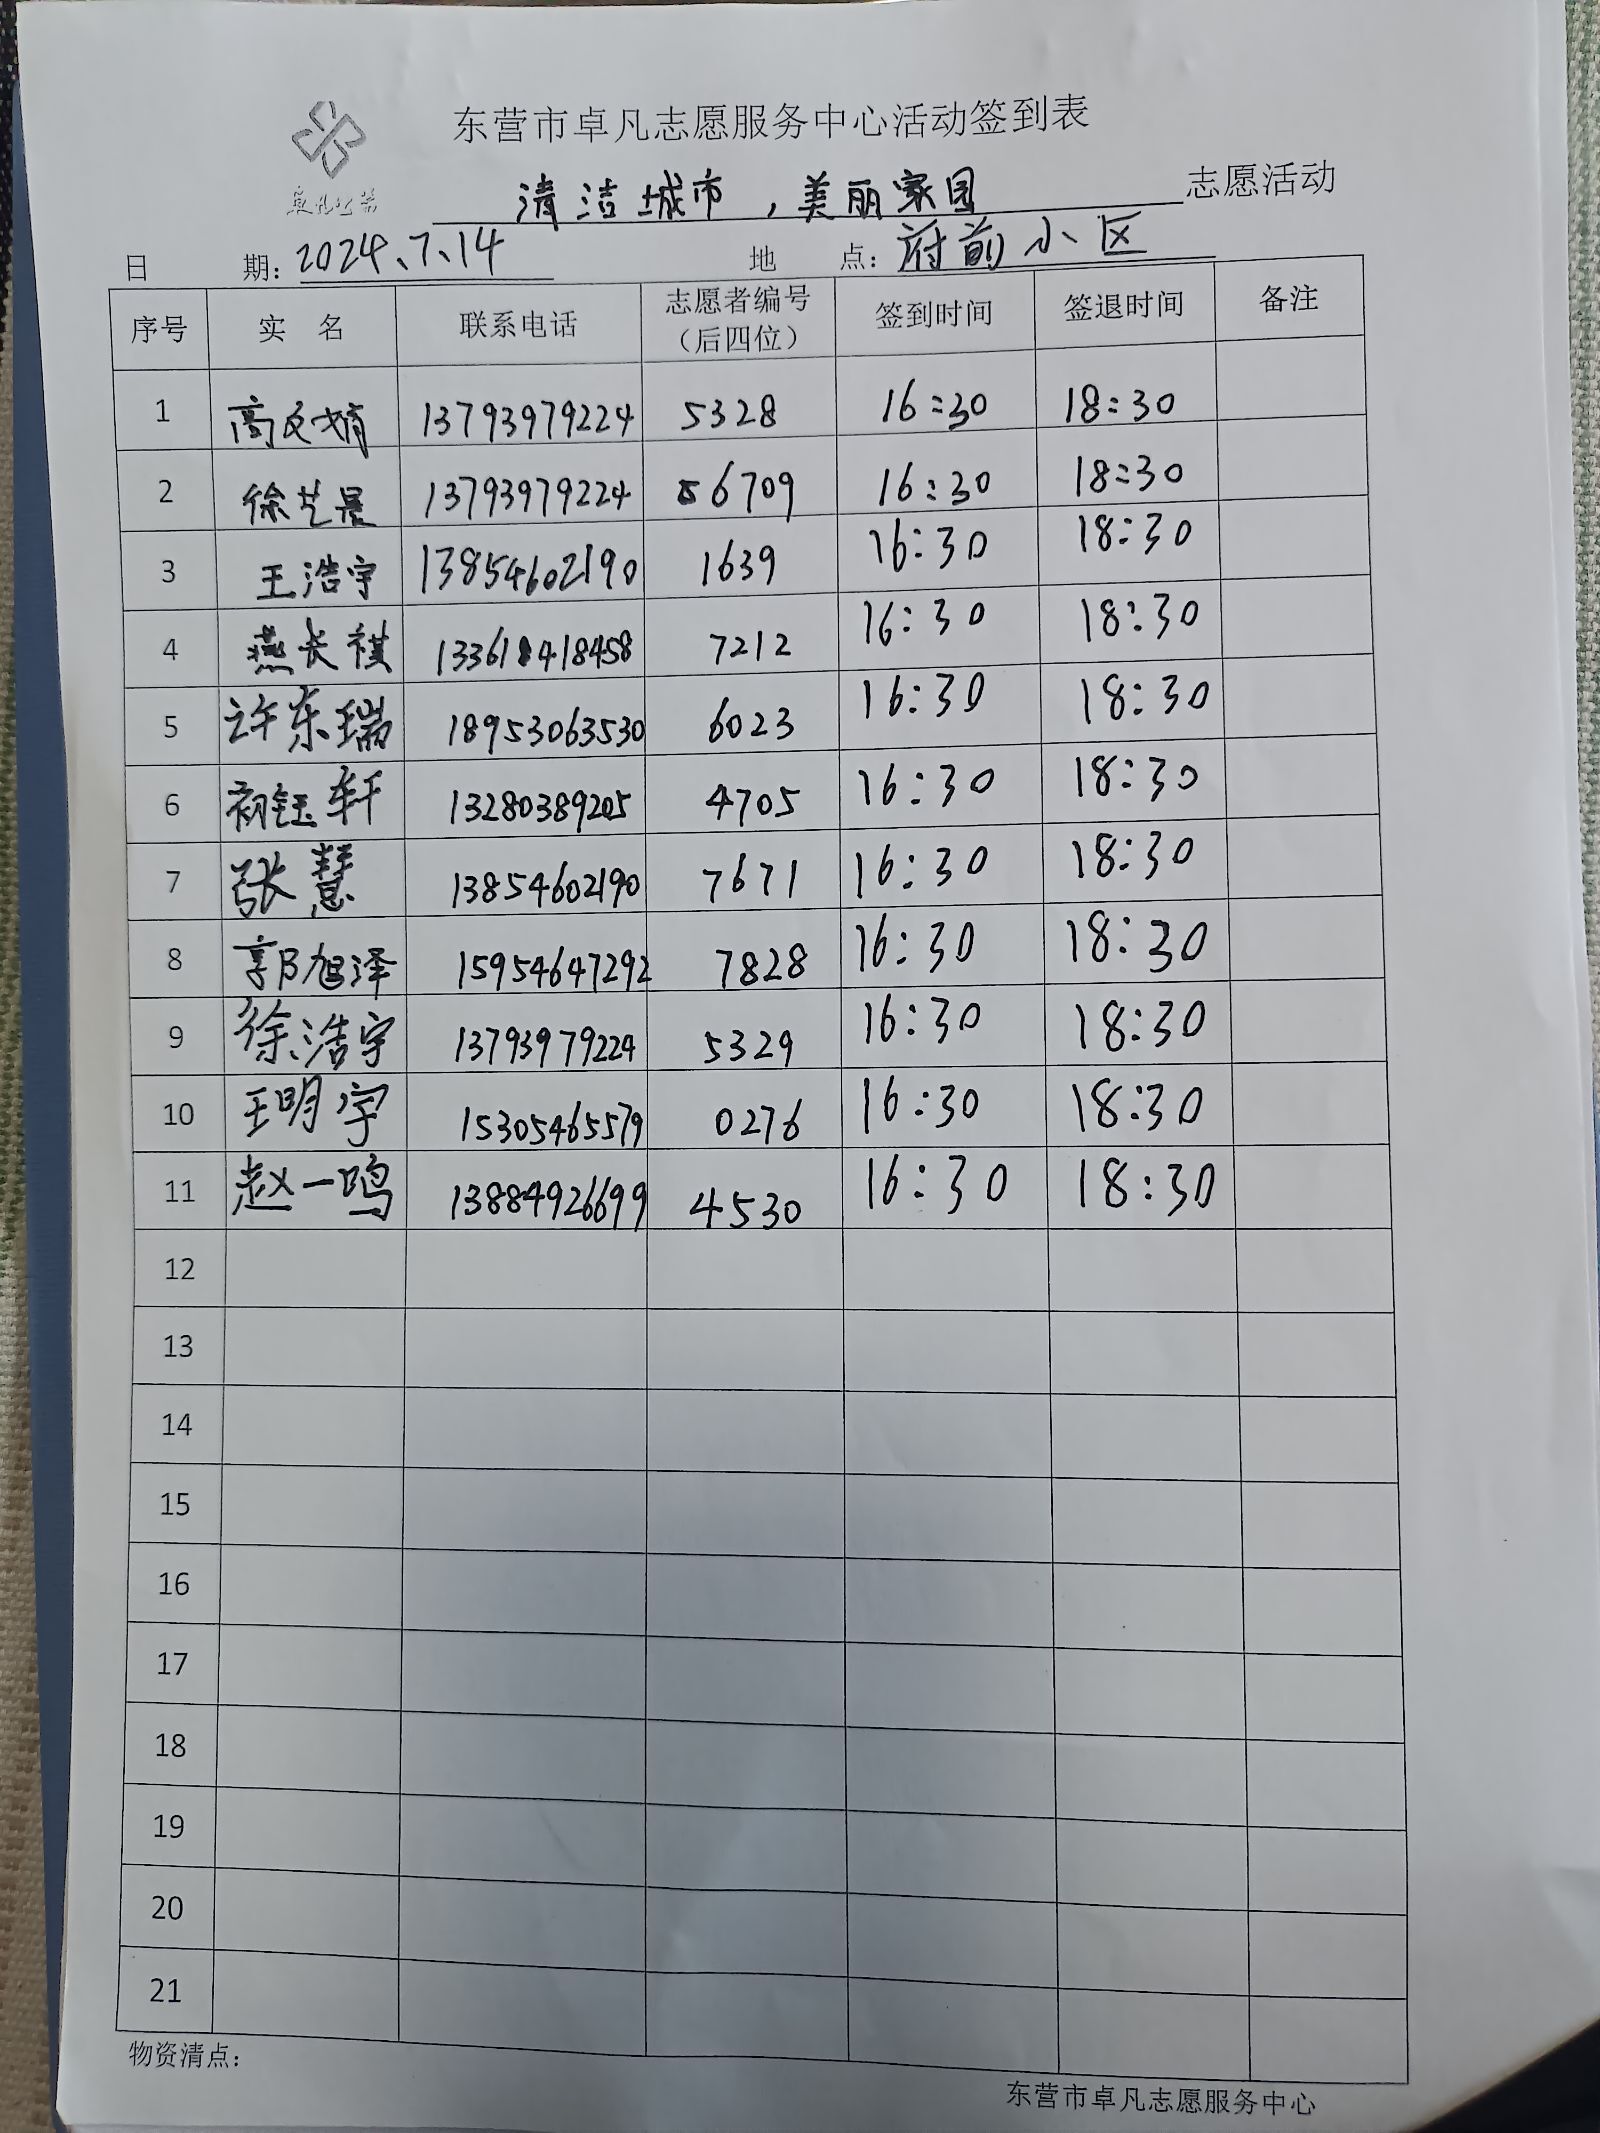 东营市卓凡志愿服务中心活动签到表
卓凡公益
清洁城市，美丽家园 志愿活动
日 期：2024、7、14 地 点：府前小区
序号 实 名 联系电话 志愿者编号（后四位） 签到时间 签退时间 备注
1 高文婧 13793979224 5328 16:30 18:30
2 徐艺晨 13793979224 6709 16:30 18:30
3 王浩宇 13854602190 1639 16:30 18:30
4 燕长祺 7212 16:30 18:30
5 许东瑞 18953063530 6023 16:30 18:30
6 初钰轩 13280389205 4705 16:30 18:30
7 张慧 13854602190 7671 16:30 18:30
8 郭旭泽 15954647292 7828 16:30 18:30
9 徐浩宇 13793979224 5329 16:30 18:30
10 王明宇 15305465579 0276 16:30 18:30
11 赵一鸣 13884926699 4530 16:30 18:30
12
13
14
15
16
17
18
19
20
21
物资清点：
东营市卓凡志愿服务中心